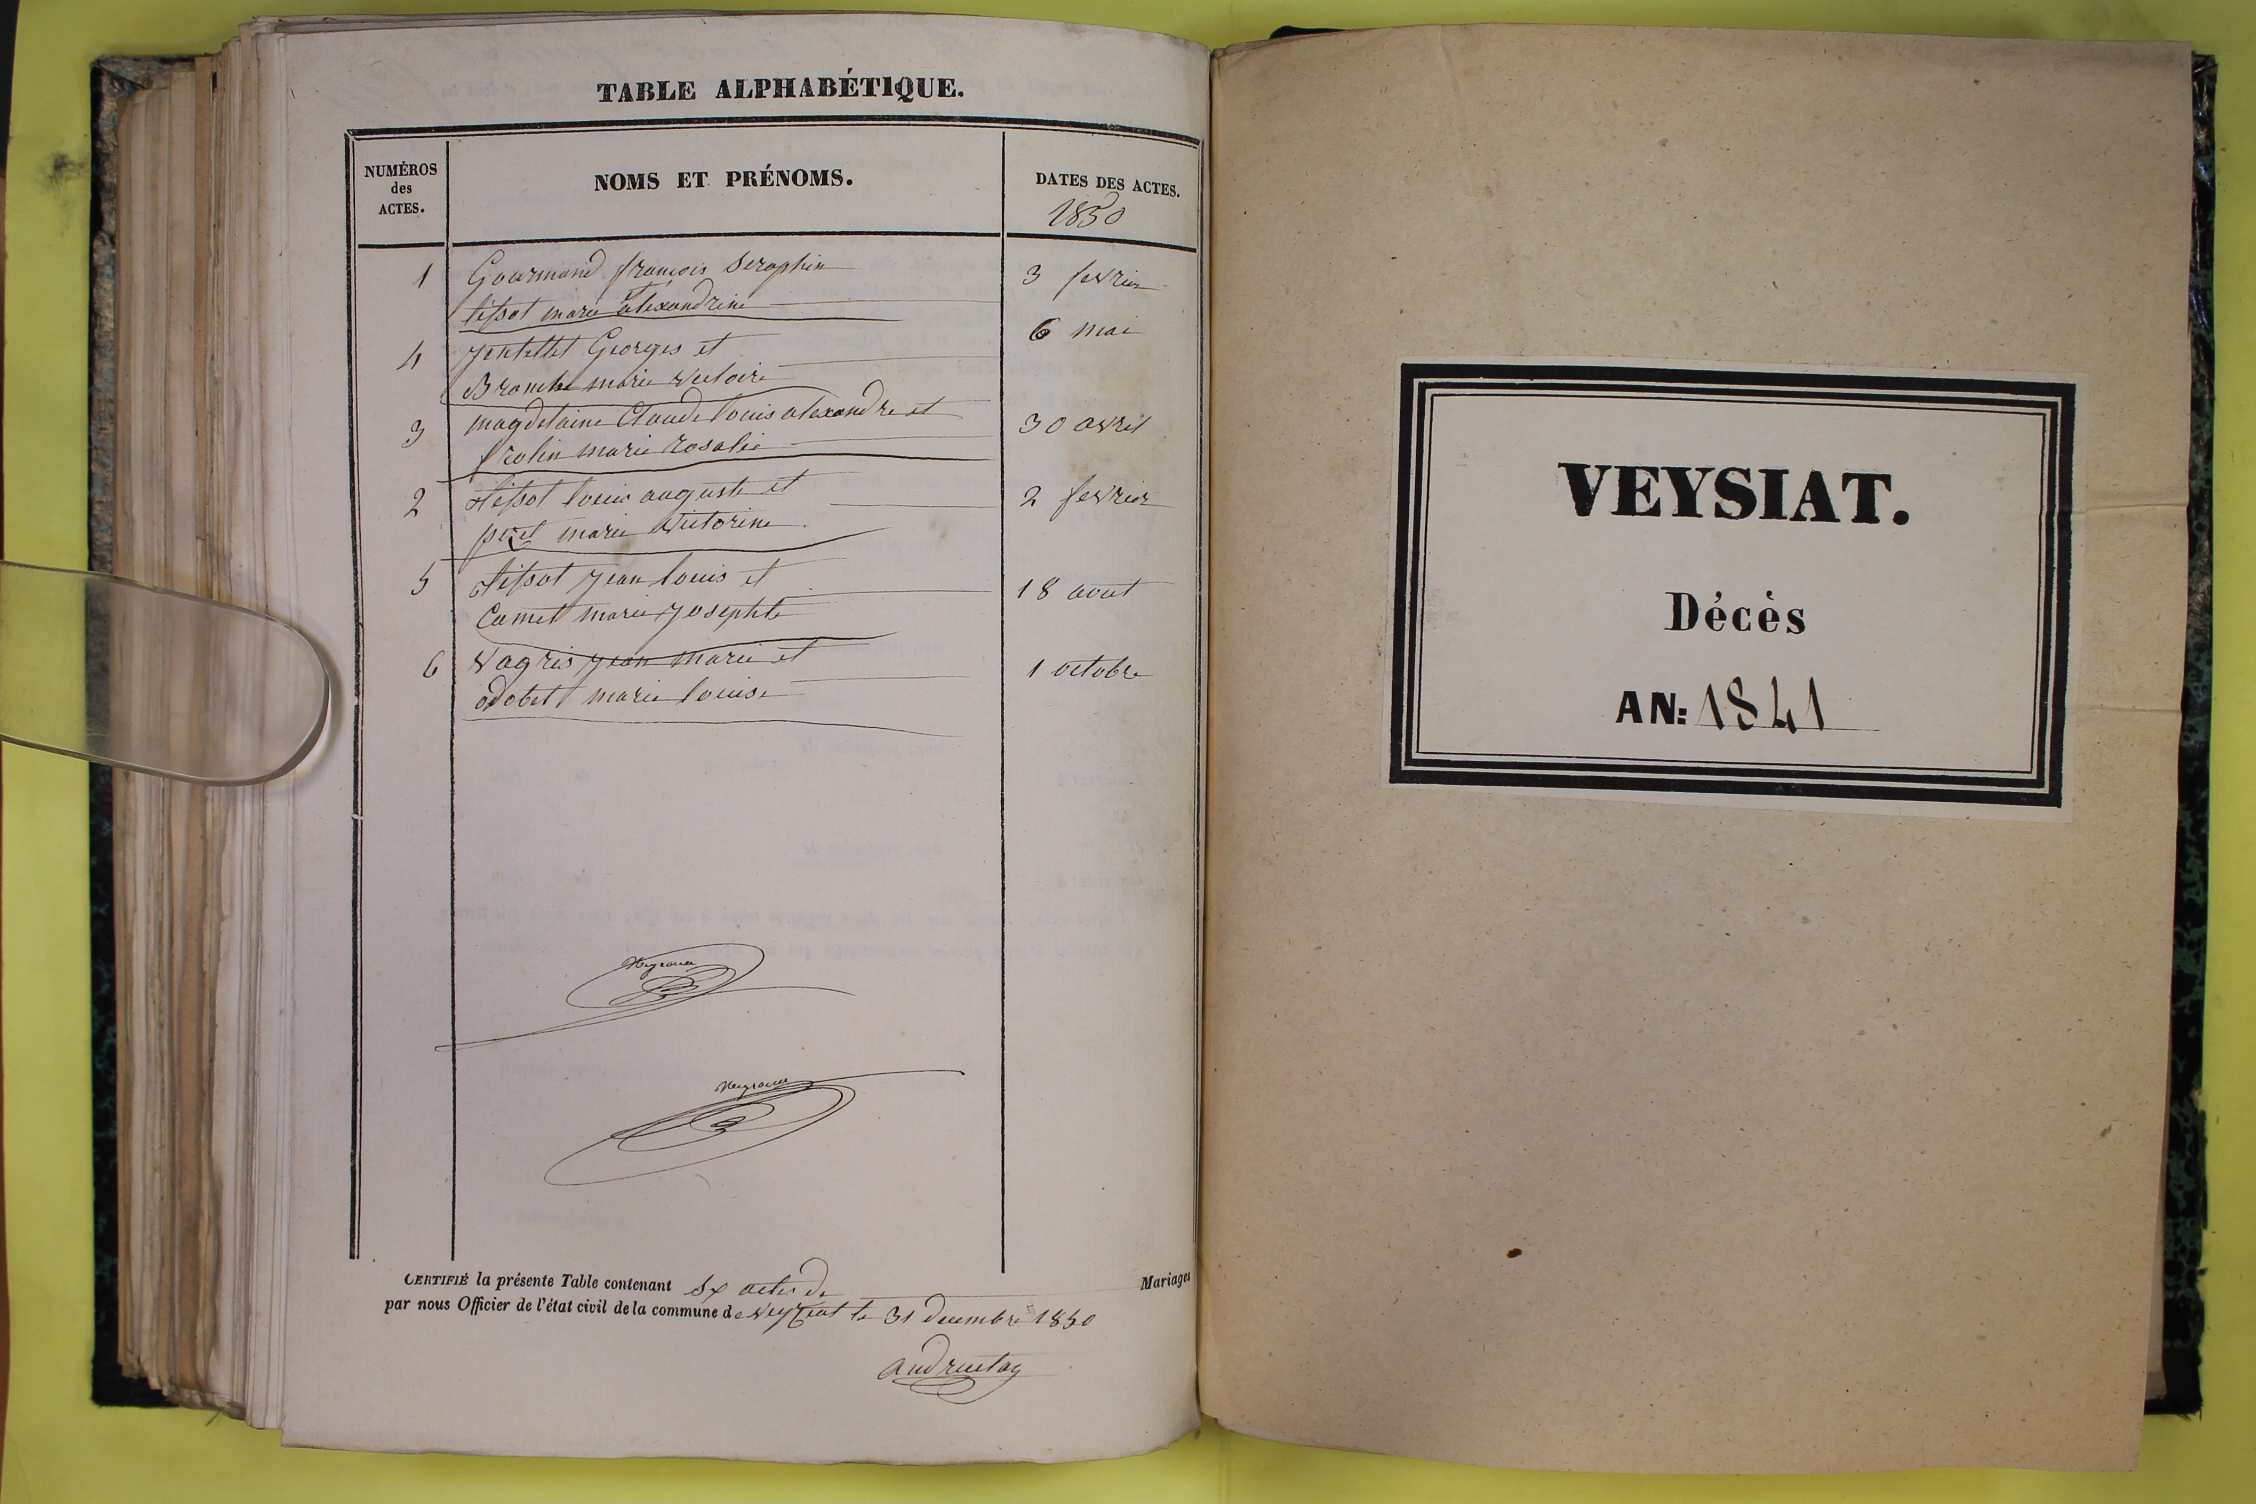 TABLE ALPHABÉTIQUE.
NUMÉROS
des
ACTES.
NOMS ET PRÉNOMS.
DATES DES ACTES.
1850
1 Gourmand françois Seraphin 3 fevrier
tissot marie alexandrine
4 Georges et 6 mai
marie victoire
3 magdelaine Claude louis alexandre et 30 avril
frolin marie rosalie
2 tissot louis auguste et 2 fevrier
marie victorine
5 tissot jean louis et 18 aout
marie josephte
6 vagris jean marie et 1 octobre
odobet marie louise
CERTIFIÉ la présente Table contenant six actes de Mariages
par nous Officier de l'état civil de la commune de veyziat le 31 decembre 1850
VEYSIAT.
Décès
AN: 1841